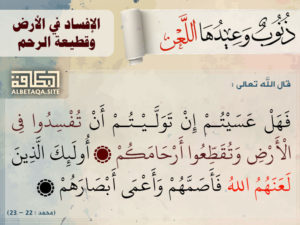 ذُنُوبٌ وَعِيدُهَا اللَّعْنُ
الإفساد في الأرض
وقطيعة الرحم
البطاقة
ALBETAQA.SITE
قال الله تعالى :
فَهَلْ عَسَيْتُمْ إِنْ تَوَلَّيْتُمْ أَنْ تُفْسِدُوا فِي
الْأَرْضِ وَتُقَطِّعُوا أَرْحَامَكُمْ ۝ أُولَئِكَ الَّذِينَ
لَعَنَهُمُ اللهُ فَأَصَمَّهُمْ وَأَعْمَى أَبْصَارَهُمْ ۝
(محمد : 22 – 23)